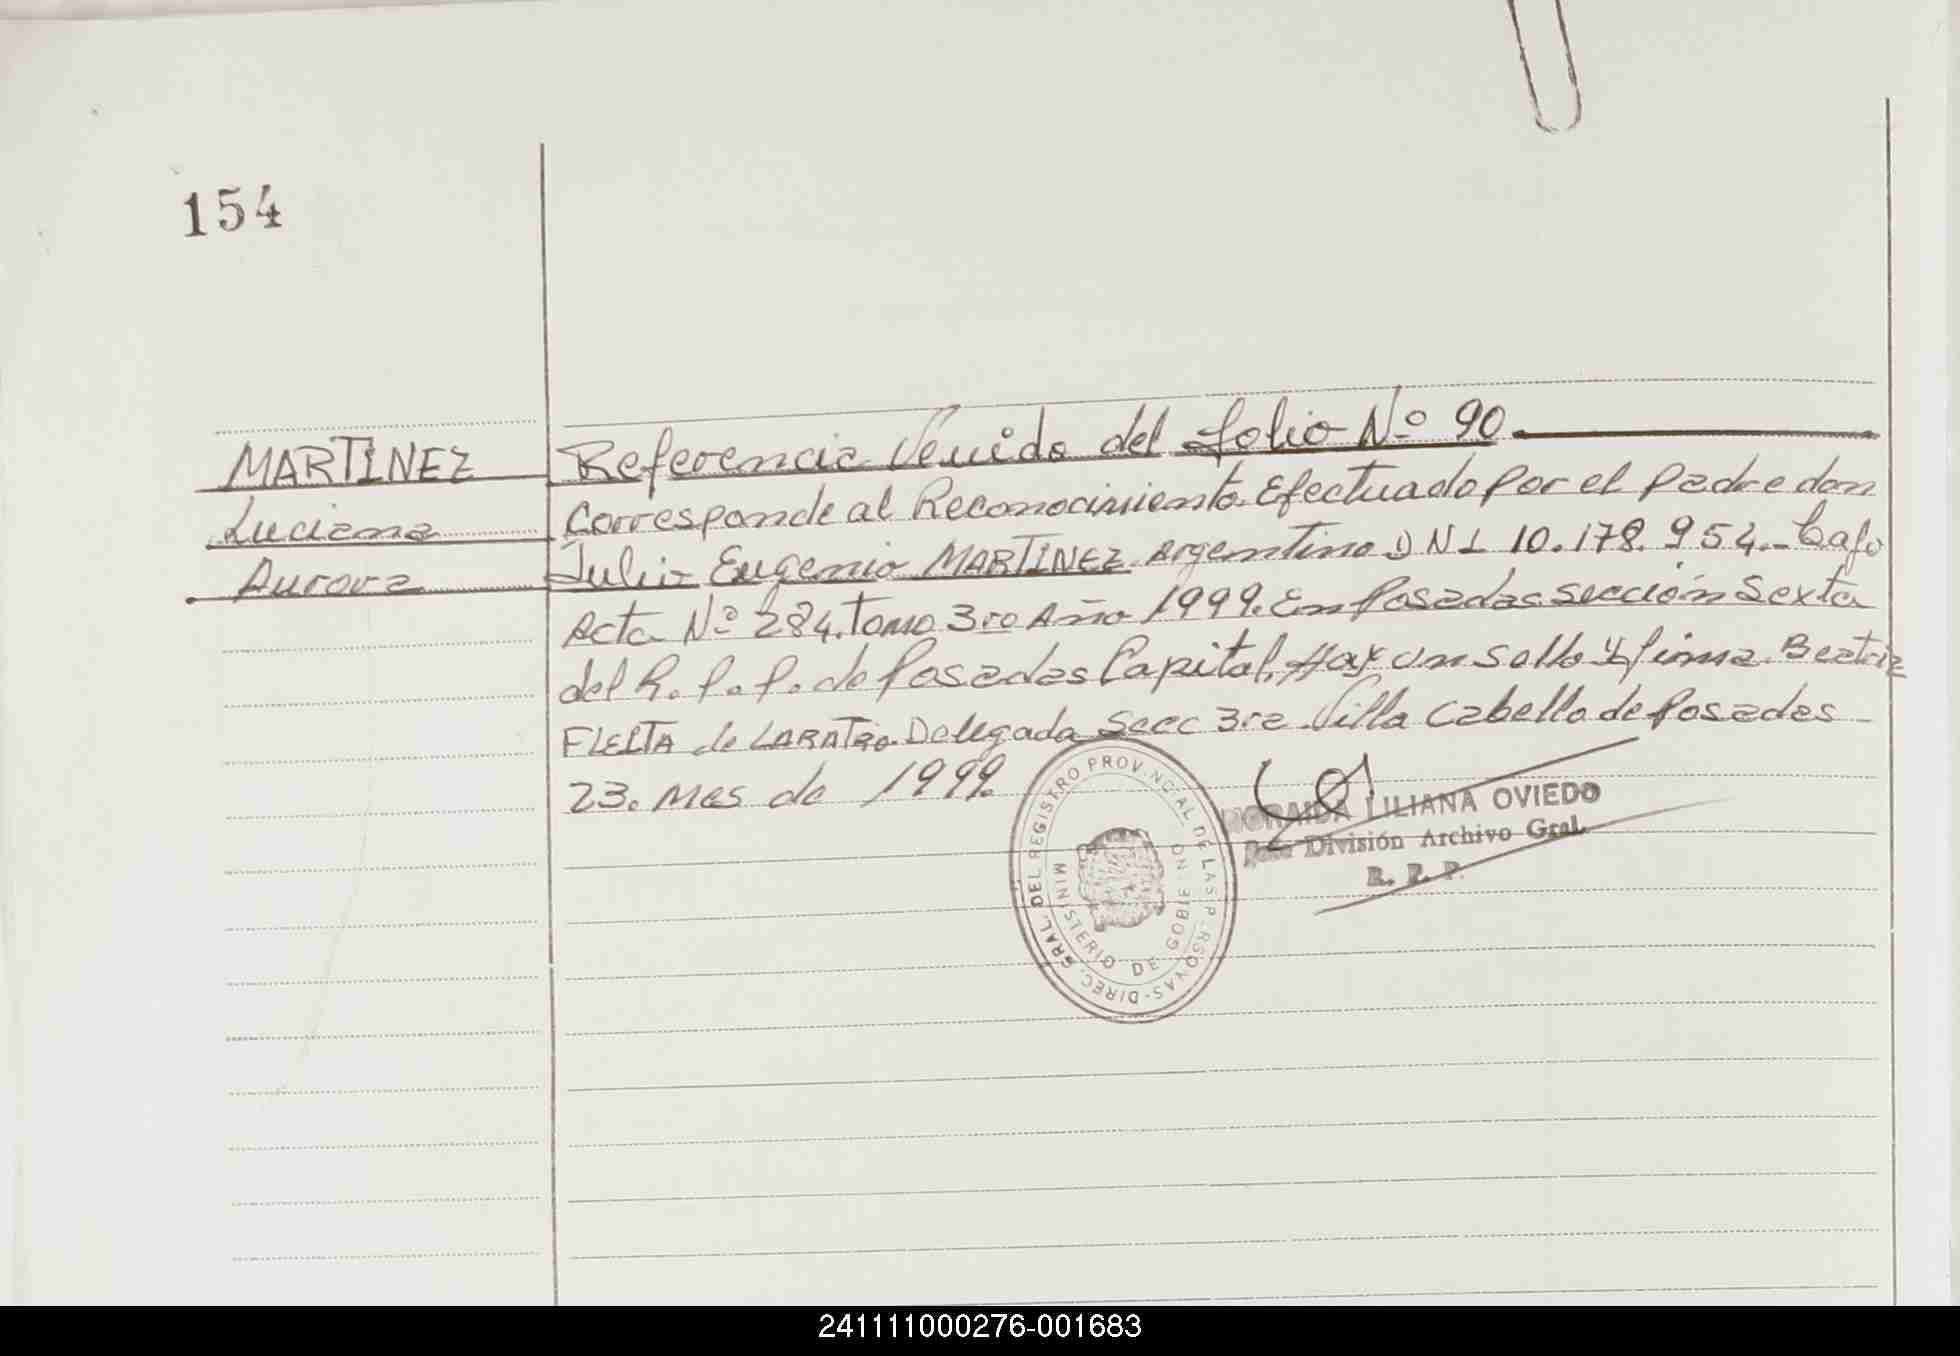 154
MARTINEZ Referencia Venido del folio Nº 90
Luciana Corresponde al Reconocimiento Efectuado por el padre don
Aurora Julio Eugenio MARTINEZ Argentino DNI 10.178.954.- bajo
Acta Nº 284. Tomo 3ro Año 1999. En Posadas sección Sexta
del R.P.P. de Posadas Capital, Hay un sello y firma. Beatriz
de Delegada Secc 3ra Villa Cabello de Posadas
23. mes de 1999.
LILIANA OVIEDO
Jefe División Archivo Gral.
R. P. P.
DIREC. GRAL. DEL REGISTRO PROVINCIAL DE LAS PERSONAS-
MINISTERIO DE GOBIERNO
241111000276-001683